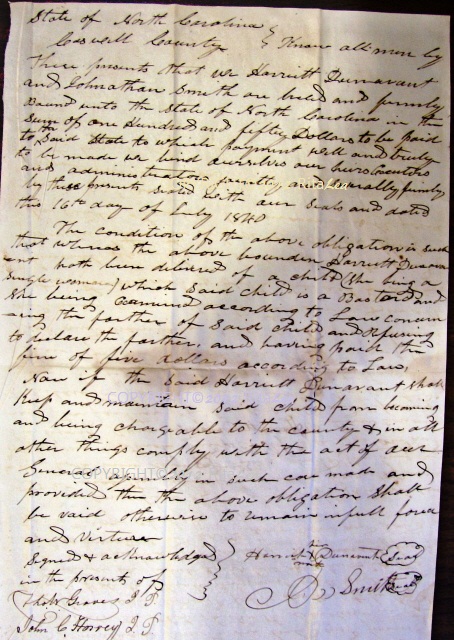 State of North Carolina }
Caswell County } Know all men by
These presents that we Harriett Dunavant
and Johnathan Smith are held and firmly
Bound unto the State of North Carolina in the
Sum of one Hundred and fifty Dollars to be paid
to Said State to which payment well and truly
to be made we bind ourselves our heirs Executors
and administrators jointly and severally firmly
by these presents Sealed with our Seals and dated
this 16th day of July 1840
The Condition of the above obligation is such
that whereas the above bounden Harriett Dunav
ant hath been delivered of a child (she being a
single woman) which Said child is a Bastard and
She being Examined according to Law concern
ing the farther of Said Child and refusing
to declare the farther, and having paid the
fine of five dollars according to Law,
Now if the Said Harriett Dunavant shall
Keep and maintain Said child from becoming
and being chargable to the county & in all
other things comply with the act of our
General assembly in such case made and
provided then the above obligation shall
be void otherwise to remain in full force
and virtue
Signed & acknowledged
in the presents of
Harriett X Dunavant Seal
mark
Smith Seal
Graves J. P.
John C. Harvey J. P.
COPYRIGHT